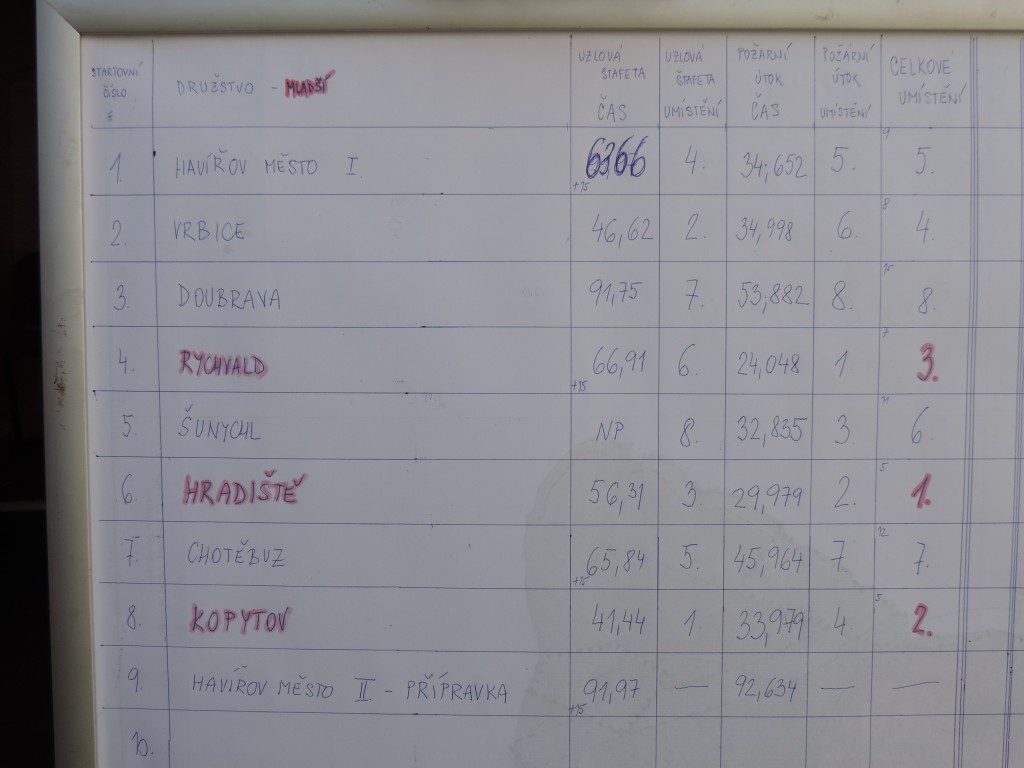 STARTOVNÍ ČÍSLO DRUŽSTVO - MLADŠÍ UZLOVÁ ŠTAFETA ČAS UZLOVÁ ŠTAFETA UMÍSTĚNÍ POŽÁRNÍ ÚTOK ČAS POŽÁRNÍ ÚTOK UMÍSTĚNÍ CELKOVÉ UMÍSTĚNÍ
1. HAVÍŘOV MĚSTO I +15 4. 34,652 5. 9 5.
2. VRBICE 46,62 2. 34,998 6. 8 4.
3. DOUBRAVA 91,75 7. 53,882 8. 15 8.
4. RYCHVALD 66,91 +15 6. 24,048 1. 7 3.
5. ŠUNYCHL NP 8. 32,835 3. 11 6.
6. HRADIŠTĚ 56,31 3. 29,979 2. 5 1.
7. CHOTĚBUZ 65,84 5. 45,964 7. 12 7.
8. KOPYTOV 41,44 1. 33,979 4. 5 2.
9. HAVÍŘOV MĚSTO II - PŘÍPRAVKA 91,97 +15 — 92,634 — —
10.